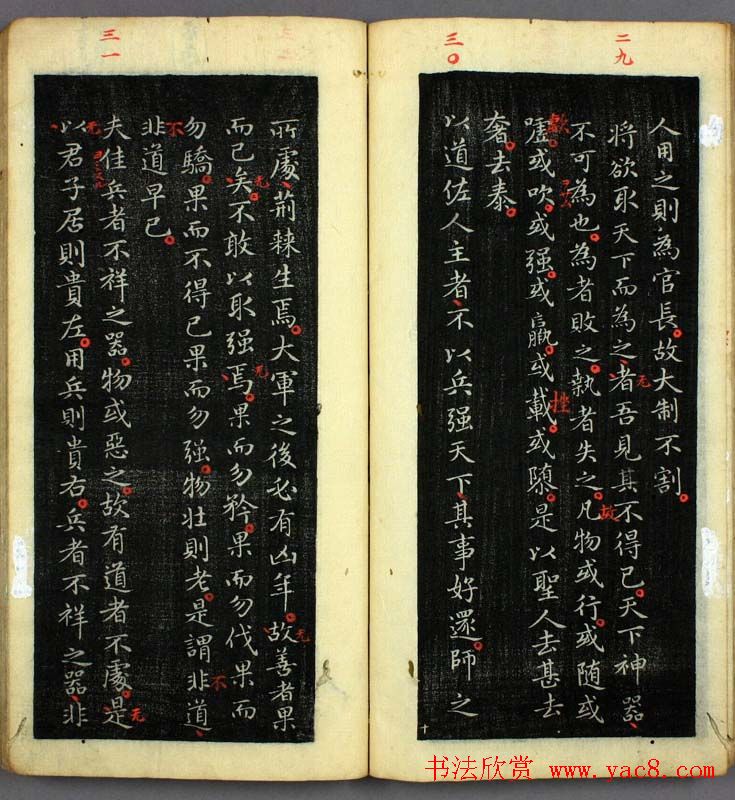 二九
三〇
人用之則為官長。故大制不割。
將欲取天下而為之、者吾見其不得已。天下神器、
不可為也。為者敗之。執者失之。凡物或行。或随或
嘘。或吹。或强。或羸。或載。或隳。是以聖人去甚去
奢。去泰。
以道佐人主者、不以兵强天下。其事好還。師之
无
故
歔
挫
三一
所處、荊棘生焉。大軍之後必有凶年。故善者果
而已矣。不敢以取强焉。果而勿矜。果而勿伐果而
勿驕。果而不得已果而勿强。物壮則老。是謂非道、
非道早已。
夫佳兵者不祥之器。物或惡之。故有道者不處。是
以君子居則貴左。用兵則貴右。兵者不祥之器、非
无
无
无
不
不
无
无
书法欣赏 www.yac8.com